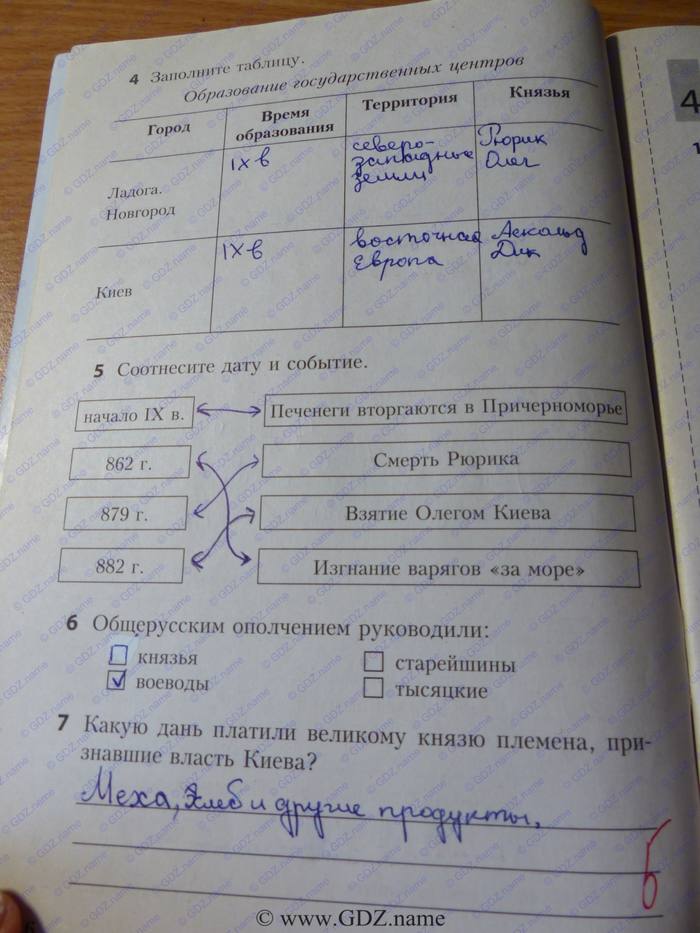 4 Заполните таблицу.
Образование государственных центров
Город Время образования Территория Князья
Ладога. Новгород IX в северо-западные земли Рюрик Олег
Киев IX-в восточная Европа Аскольд Дик
5 Соотнесите дату и событие.
начало IX в. Печенеги вторгаются в Причерноморье
862 г. Смерть Рюрика
879 г. Взятие Олегом Киева
882 г. Изгнание варягов «за море»
6 Общерусским ополчением руководили:
князья старейшины
воеводы тысяцкие
7 Какую дань платили великому князю племена, при-
знавшие власть Киева?
Меха, хлеб и другие продукты.
© www.GDZ.name
4
1